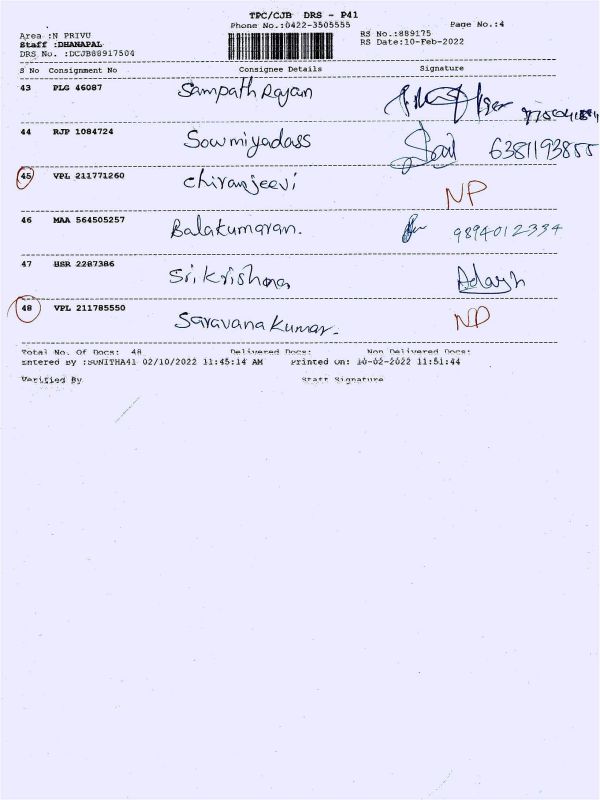 TPC/CJB DRS - P41
Phone No.:0422-3505555 Page No.:4
Area :N PRIVU RS No.:889175
Staff :DHANAPAL RS Date:10-Feb-2022
DRS No. :DCJB88917504
S No Consignment No Consignee Details Signature
43 PLG 46087 Sampath Rajan
44 RJP 1084724 Sowmiyadass 6381193855
45 VPL 211771260 Chiranjeevi NP
46 MAA 564505257 Balakumaran. 9894012334
47 HSR 2287386 Srikrishna Adarsh
48 VPL 211785550 Saravana Kumar. NP
Total No. Of Docs: 48 Delivered Docs: Non Delivered Docs:
Entered By :SUNITHA41 02/10/2022 11:45:14 AM Printed On: 10-02-2022 11:51:44
Verified By Staff Signature